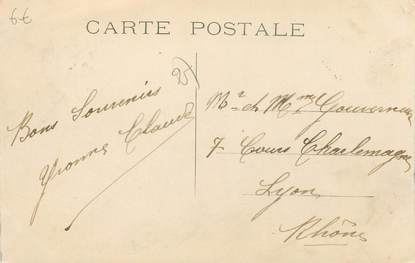 6€
CARTE POSTALE
25
Bons Souvenirs
Yvonne Claude
Mr et Mme Gouverneur
7 Cours Charlemagne
Lyon
Rhône